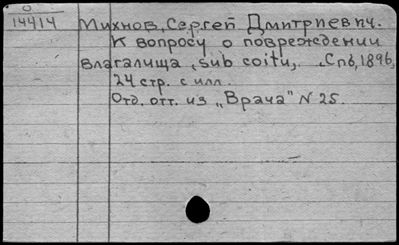 0
14414
Михнов, Сергей Дмитриевич.
К вопросу о повреждении
влагалища "sub coitu", Спб, 1896,
24 стр. с илл.
Отд. отт. из "Врача" N 25.